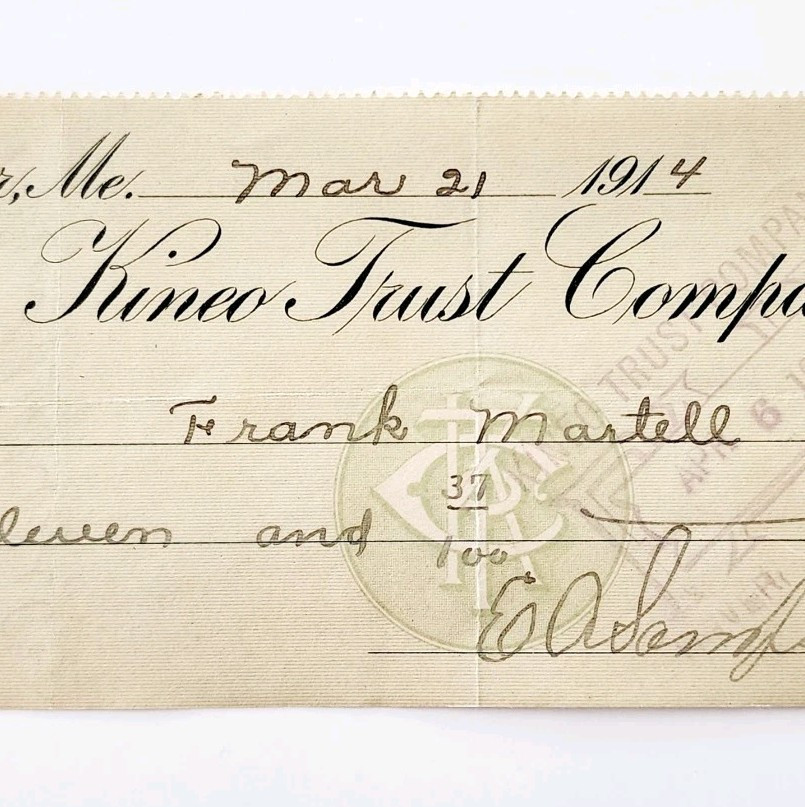 r, Me. Mar 21 1914
Kineo Trust Compa
Frank Martell
leven and 37/100
E A
KINEO TRUST COMPA
APR 6 1